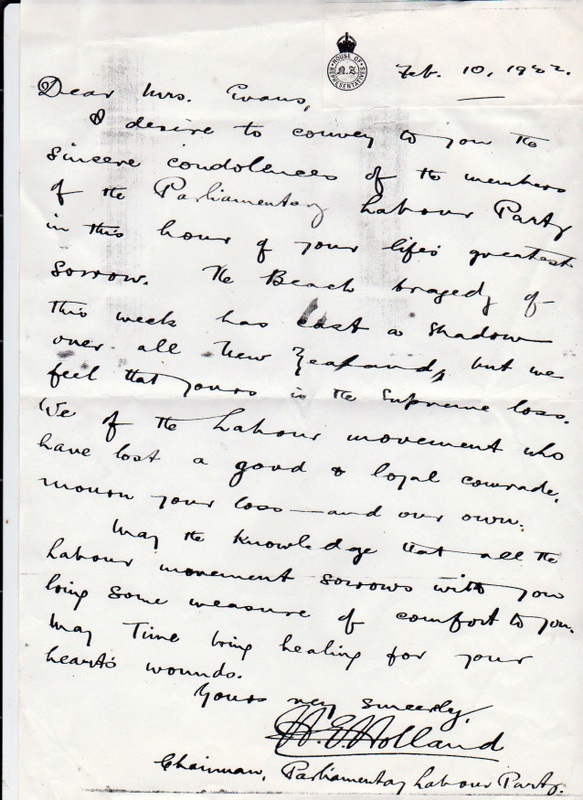 HOUSE OF REPRESENTATIVES
N.Z.
Feb. 10, 1922.
Dear Mrs. Evans,
I desire to convey to you the
sincere condolences of the members
of the Parliamentary Labour Party
in this hour of your life's greatest
sorrow. The Beach tragedy of
this week has cast a shadow
over all New Zealand, but we
feel that yours is the supreme loss.
We of the Labour movement who
have lost a good & loyal comrade,
mourn your loss—and our own.
May the knowledge that all the
Labour movement sorrows with you
bring some measure of comfort to you.
May Time bring healing for your
heart's wounds.
Yours very sincerely,
H.E. Holland
Chairman, Parliamentary Labour Party.